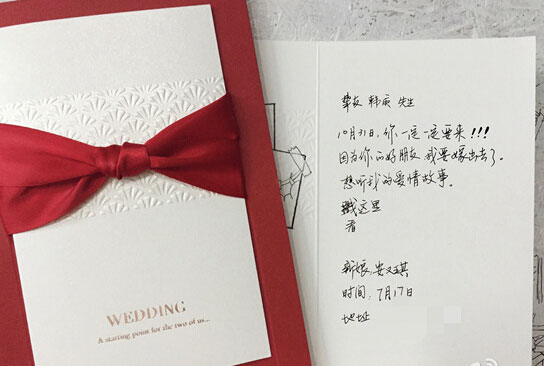 WEDDING
A starting point for the two of us...
挚友 韩庚 先生
10月31日,你一定一定要来!!!
因为你的好朋友我要嫁出去了。
想听我的爱情故事。
戳这里
看
新娘:安又琪
时间:7月17日
地址